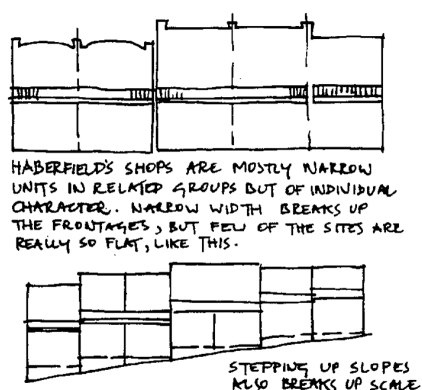 HABERFIELD'S SHOPS ARE MOSTLY NARROW
UNITS IN RELATED GROUPS BUT OF INDIVIDUAL
CHARACTER. NARROW WIDTH BREAKS UP
THE FRONTAGES, BUT FEW OF THE SITES ARE
REALLY SO FLAT, LIKE THIS.
STEPPING UP SLOPES
ALSO BREAKS UP SCALE